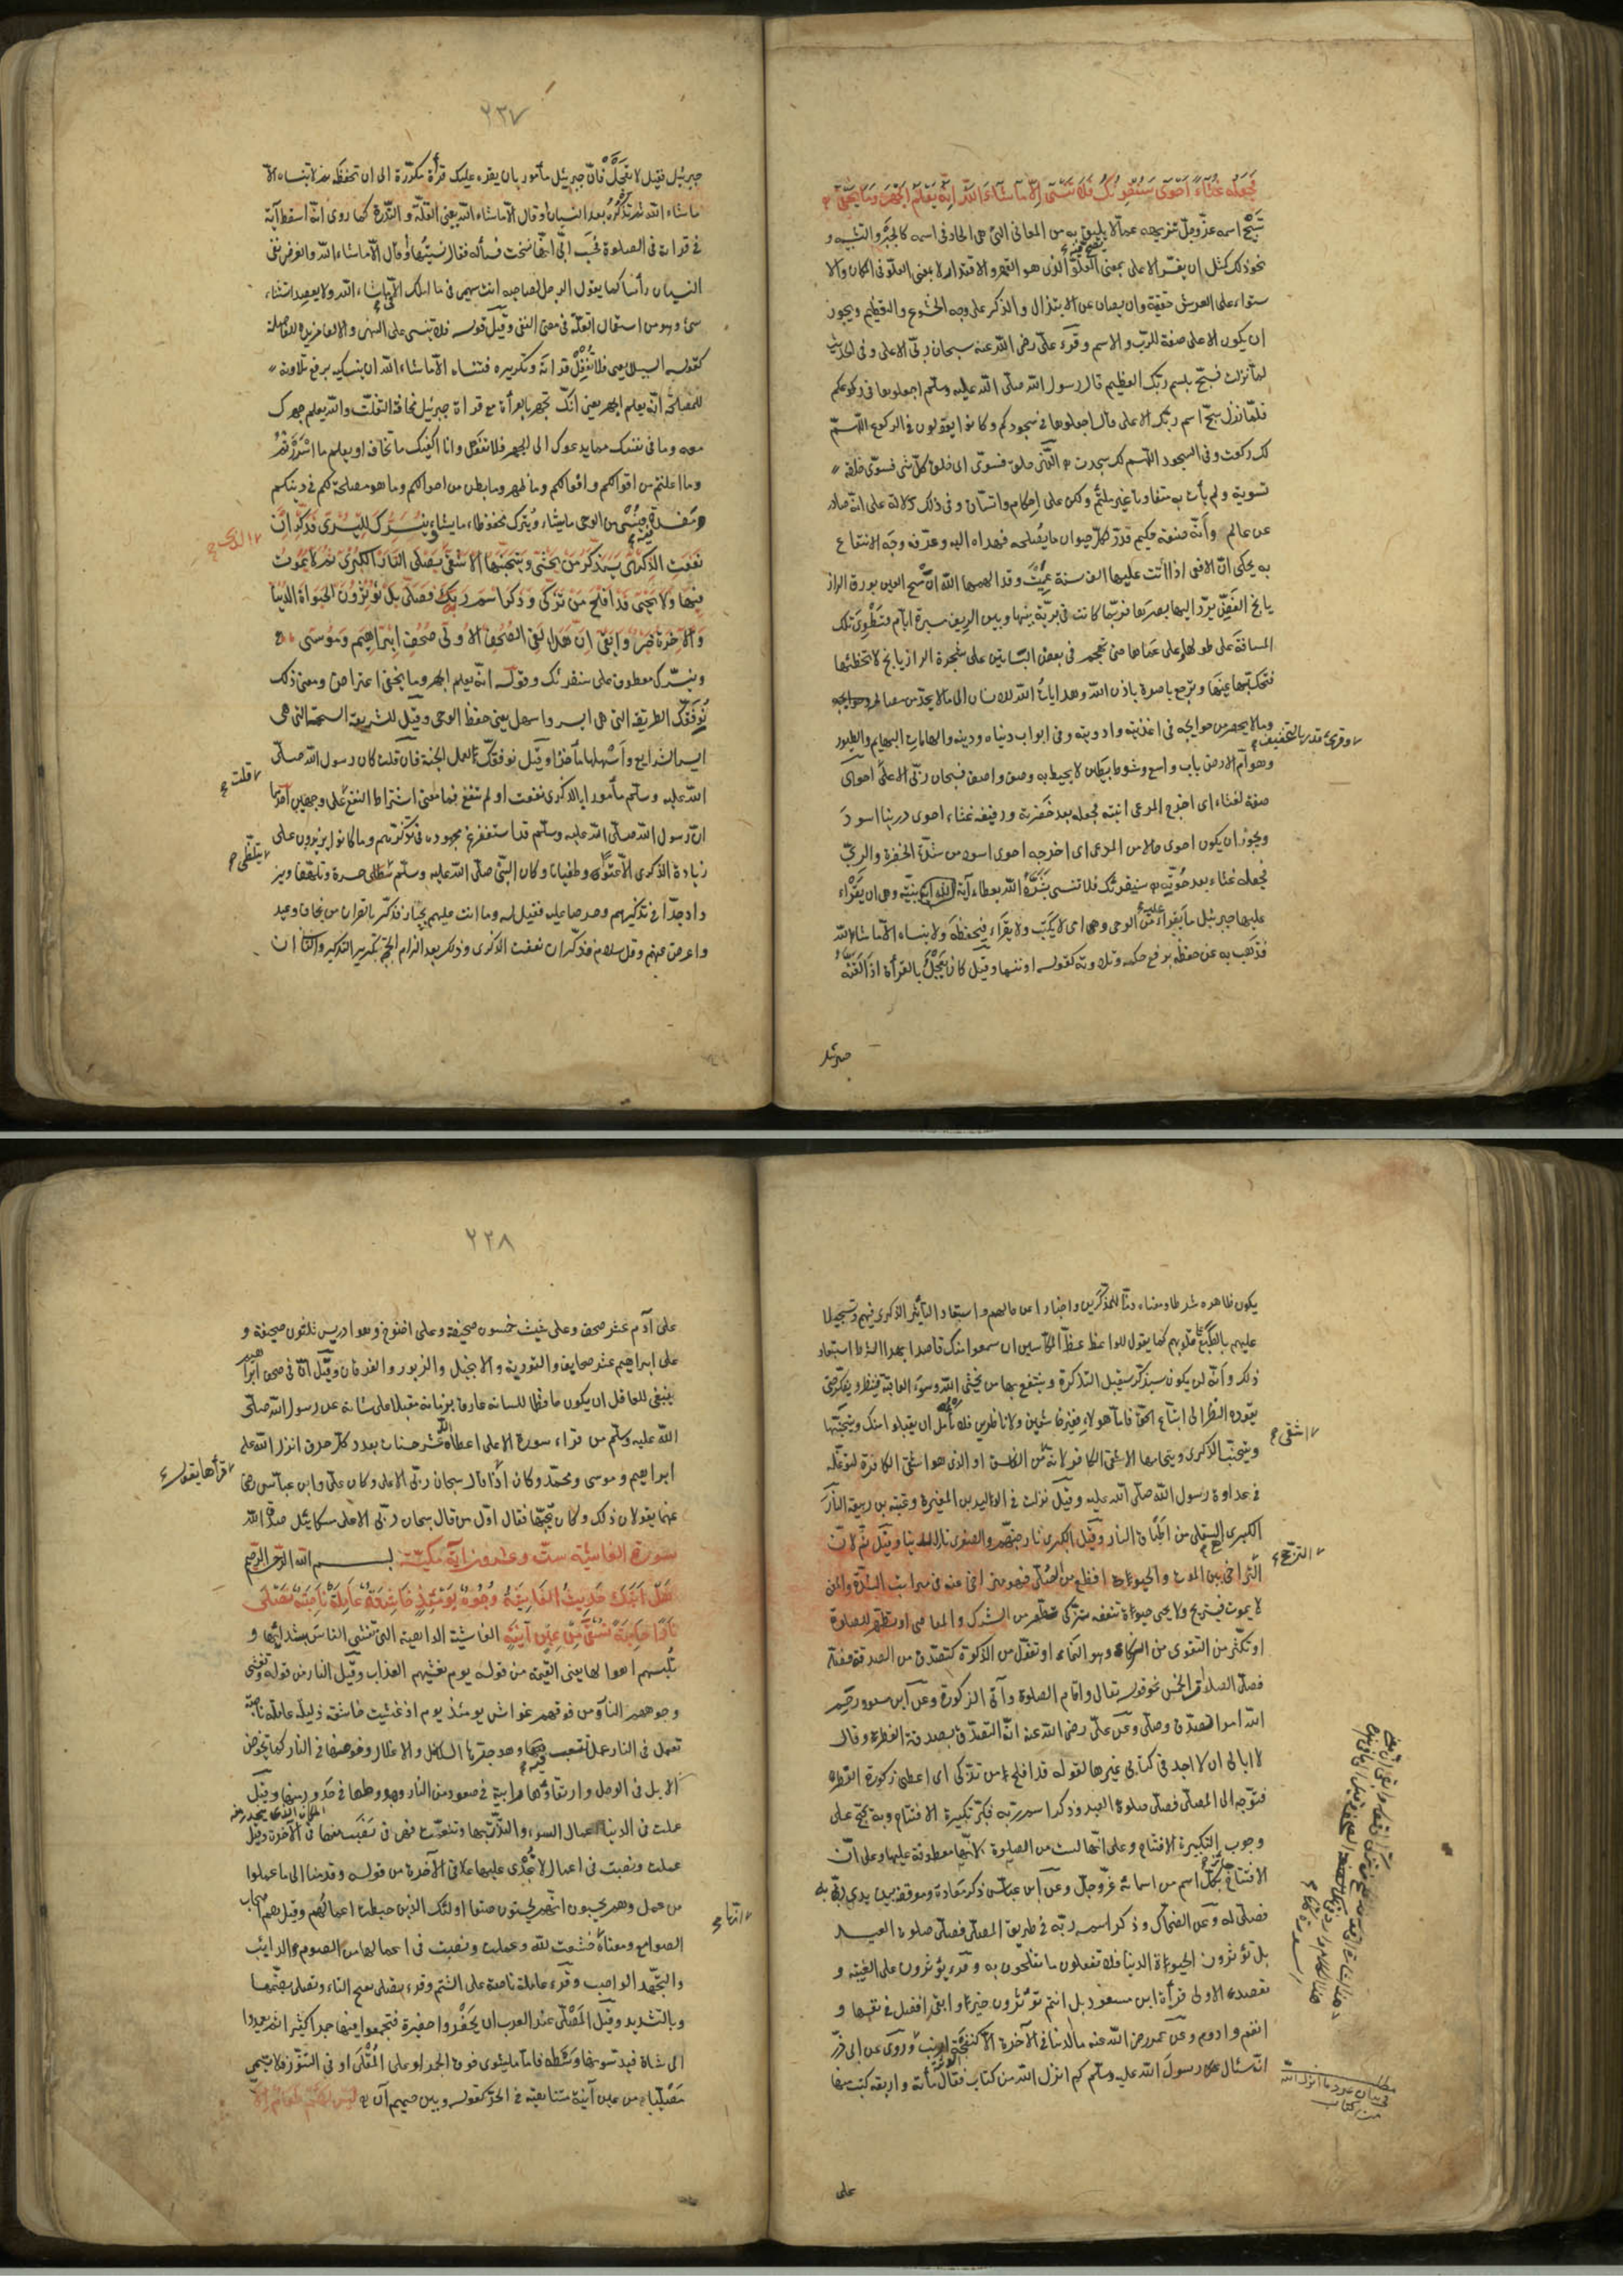 فَجَعَلَهُ غُثَاءً أَحْوَى سَنُقْرِئُكَ فَلَا تَنْسَى إِلَّا مَا شَاءَ اللهُ إِنَّهُ يَعْلَمُ الْجَهْرَ وَمَا يَخْفَى
تسبيح اسمه عزّ وجلّ تنزيهه عمّا لا يليق به من المعاني التي هي الحاد في اسمه كالجبر والتشبيه و
نحو ذلك مثل ان يفسّر الاعلى بمعنى العلوّ الذي هو القهر والاقتدار لا بمعنى العلوّ في المكان والا
ستواء على العرش حقيقة وان يصان عن الابتذال والذكر على وجه الخشوع والتعظيم ويجوز
ان يكون الاعلى صفة للرب والاسم وقرء عليّ رضي الله عنه سبحان ربّي الاعلى وفي الحديث
لما نزلت فسبّح باسم ربّك العظيم قال رسول الله صلّى الله عليه وسلّم اجعلوها في ركوعكم
فلمّا نزل سبّح اسم ربّك الاعلى قال اجعلوها في سجودكم وكانوا يقولون في الركوع اللّهمّ
لك ركعت وفي السجود اللّهمّ لك سجدت الّذي خلق فسوّى اى خلق كلّ شئ فسوّى خلقه
تسوية ولم يأت به متفاوتا غير ملتئم ولكن على إحكام واتساق وفي ذلك دلالة على انّه صادر
عن عالم وأنّه صنعة حكيم قدّر لكلّ حيوان ما يصلحه فهداه اليه وعرّفه وجه الانتفاع
به يحكى انّ الافعى اذا اتت عليها الف سنة عميت وقد الهمها الله انّ مسح العين بورق الراز
يانج الغضّ يردّ اليها بصرها فربّما كانت في بريّة بينها وبين الريف مسيرة ايّام فتطوى تلك
المسافة على طولها وعلى عماها حتى تهجم في بعض البساتين على شجرة الرازيانج لا تخطئها
فتحكّ بها عينها وترجع باصرة باذن الله وهدايات الله للانسان الى ما لا يحدّ من مصالحه
وما لا يحصر من حوايجه في اغذيته وادويته وفي ابواب دنياه ودينه والهامات البهايم والطيور
وهوامّ الارض باب واسع وشوط بطين لا يحيط به وصف واصف فسبحان ربّي الاعلى احوى
صفة لغثاء اى اخرج المرعى انبته فجعله بعد خضرته ورفيفه غثاء احوى درينا اسود
ويجوز ان يكون احوى حالا من المرعى اى اخرجه احوى اسود من شدّة الخضرة والريّ
فجعله غثاء بعد حوّته سنقرئك فلا تنسى بشّره الله بعطاء آية بيّنة وهي ان يقراء
عليها جبرئيل ما يقراء عليه من الوحى وهو امّى لا يكتب ولا يقراء فيحفظه ولا ينساه الا ما شاء الله
فذهب به عن حفظه برفع حكمه وتلاوته كقوله او ننسها وقيل كان يعجل بالقرأة اذا لقنه
وقرئ قدر بالتخفيف
جبرئيل
٢٣٧
جبرئيل فقيل لا تعجل فانّ جبرئيل مأمور بان يقرء عليك قرأة مكرّرة الى ان تحفظه ثم لا تنساه الا
ما شاء الله ثم تذكره بعد النسيان او قال الا ما شاء الله يعنى القلّة والنّدرة كما روى انّه اسقط آية
في قراءة في الصلوة فحسب اُبيّ انّها نسخت فسأله فقال نسيتها وقال الا ما شاء الله والغرض نفى
النسيان رأسا كما يقول الرجل لصاحبه انت سهيمى فيما املك الا ما شاء الله ولا يقصد استثناء
شئ وهو من استعمال القلّة في معنى النفى وقيل قوله فلا تنسى على النهى والالف مزيدة للفاصلة
كقوله السبيلا يعنى فلا تغفل قراءته وتكريره فتنساه الا ما شاء الله ان ينسيكه برفع تلاوته
للمصلحة انّه يعلم الجهر يعنى انّك تجهر بالقراءة مع قراءة جبرئيل مخافة التفلّت والله يعلم جهرك
معه وما في نفسك مما يدعوك الى الجهر فلا تفعل وانا اكفيك ما تخافه او يعلم ما اسررتم
وما اعلنتم من اقوالكم وافعالكم وما ظهر وما بطن من احوالكم وما هو مصلحة لكم في دينكم
ومفسدة فينسى من الوحى ما يشاء ويترك محفوظا ما يشاء وَنُيَسِّرُكَ لِلْيُسْرَى فَذَكِّرْ إِنْ
نَفَعَتِ الذِّكْرَى سَيَذَّكَّرُ مَنْ يَخْشَى وَيَتَجَنَّبُهَا الْأَشْقَى الَّذِي يَصْلَى النَّارَ الْكُبْرَى ثُمَّ لَا يَمُوتُ
فِيهَا وَلَا يَحْيَى قَدْ أَفْلَحَ مَنْ تَزَكَّى وَذَكَرَ اسْمَ رَبِّهِ فَصَلَّى بَلْ تُؤْثِرُونَ الْحَيَوةَ الدُّنْيَا
وَالْآخِرَةُ خَيْرٌ وَأَبْقَى إِنَّ هَذَا لَفِي الصُّحُفِ الْأُولَى صُحُفِ إِبْرَاهِيمَ وَمُوسَى
ونيسّرك معطوف على سنقرئك وقوله انّه يعلم الجهر وما يخفى اعتراض ومعنى ذلك
نوفّقك للطريقة التي هي ايسر واسهل يعنى حفظ الوحى وقيل للشريعة السمحة التي هي
ايسر الشرايع واسهلها مأخذا وقيل نوفقك لعمل الجنة فان قلت كان رسول الله صلّى
الله عليه وسلّم مأمورا بالذكرى نفعت او لم تنفع فما معنى اشتراط النفع على وجهين احدهما
انّ رسول الله صلّى الله عليه وسلّم قد استفرغ مجهوده في تذكيرهم وما كانوا يزيدون على
زيادة الذكرى الا عتوّا وطغيانا وكان النبيّ صلّى الله عليه وسلّم حسرة وتلهّفا ويز
داد جدّا في تذكيرهم وحرصا عليه فقيل له وما انت عليهم بجبّار فذكّر بالقران من يخاف وعيد
واعرض عنهم وقل سلام فذكّر ان نفعت الذكرى وذلك بعد الزام الحجّة بتكرير التذكير والثاني ان
الذى
قلت
يتلظّى
يكون ظاهره شرطا ومعناه ذمّا للمذكّرين واخبارا عن حالهم واستبعادا لتأثير الذكرى فيهم وتسجيلا
عليهم بالطبع على قلوبهم كما يقول للواعظ عظ المكّاسين ان سمعوا منك قاصدا بهذا الشرط استبعاد
ذلك وأنّه لن يكون سيذكّر سيقبل التذكرة وينتفع بها من يخشى الله وسوء العاقبة فينظر ويفكر حتى
يقوده النظر الى اتباع الحقّ فامّا هولاء فغير خاشين ولا ناظرين فلا تأمل ان يقبلوا منك ويتجنّبها
ويتجنّب الذكرى ويتحاماها الاشقى الكافر لانه من الفاسق او الذى هو اشقى الكافرة لتوغّله
في عداوة رسول الله صلّى الله عليه وقيل نزلت في الوليد بن المغيرة وعتبة بن ربيعة النار
الكبرى السفلى من اطباق النار وقيل الكبرى نار جهنّم والصغرى نار الدنيا وقيل ثمّ لانّ
بين الموت والحيوة افظع من الصلى فهو متراخ عنه في مراتب الشدّة والمعنى
لا يموت فيستريح ولا يحيى حيوة تنفعه تزكّى تطهّر من الشرك والمعاصى او تطهّر للصلوة
او تكثّر من التقوى من الزكاء وهو النماء او تفعّل من الزكوة كتصدّق من الصدقة فصلّى
فصلّى الصلوات الخمس نحو قوله تعالى واقام الصلوة وآتى الزكوة وعن ابن مسعود رحم
الله امرأ تصدّق وصلّى وعن عليّ رضي الله عنه انّه التصدّق بصدقة الفطر وقال
لا ابالى ان لا اجد في كتابى غيرها لقوله قد افلح من تزكّى اى اعطى زكوة الفطر
فتوجّه الى المصلّى فصلّى صلوة العيد وذكر اسم ربّه فكبّر تكبيرة الافتتاح وبه يحتجّ على
وجوب التكبيرة الافتتاح وعلى انّها ليست من الصلوة لانّها معطوفة عليها وعلى انّ
الافتتاح بكلّ اسم من اسمائه عزّ وجلّ وعن ابن عباس ذكر معاده وموقفه بين يدى ربّه
فصلّى له وعن الضحاك وذكر اسم ربّه في طريق المصلّى فصلّى صلوة العيد
بل تؤثرون الحيوة الدنيا فلا تفعلون ما تفلحون به وقرء يؤثرون على الغيبة و
تعضده الاولى قرأة ابن مسعود بل انتم تؤثرون خير وابقى افضل في نفسها و
انعم وادوم وعن عمر رضي الله عنه ما الدنيا في الآخرة الا كنفجة ارنب وروى عن ابى ذرّ
انّه سئال رسول الله عليه وسلّم كم انزل الله من كتاب فقال مأئة واربعة كتب منها
اشقى
الترجح
مطلب
في بيان عدد ما انزل الله
من كتاب
على
٢٢٨
على آدم عشر صحف وعلى شيث خمسون صحيفة وعلى اخنوخ وهو ادريس ثلثون صحيفة و
على ابراهيم عشر صحايف والتورية والانجيل والزبور والفرقان وقيل انّ في صحف ابراهيم
ينبغى للعاقل ان يكون حافظا للسانه عارفا بزمانه مقبلا على شانه عن رسول الله صلّى
الله عليه وسلّم من قراء سورة الاعلى اعطاه الله عشر حسنات بعدد كلّ حرف انزل الله على
ابراهيم وموسى ومحمّد وكان اذا قال سبحان ربّى الاعلى وكان عليّ وابن عبّاس رضى
عنهما يقولان ذلك وكان يحبّها فقال اوّل من قال سبحان ربّى الاعلى ميكائيل صدق الله
سورة الغاشية ستّ وعشرون آية مكيّة بسم الله الرحمن الرحيم
هَلْ أَتَيكَ حَدِيثُ الْغَاشِيَةِ وُجُوهٌ يَوْمَئِذٍ خَاشِعَةٌ عَامِلَةٌ نَاصِبَةٌ تَصْلَى
نَارًا حَامِيَةً تُسْقَى مِنْ عَيْنٍ آنِيَةٍ الغاشية الداهية التي تغشى الناس بشدائدها و
تلبسهم اهوالها يعنى القيمة من قوله يوم يغشيهم العذاب وقيل النار من قوله وتغشى
وجوههم النار ومن فوقهم غواش يومئذ يوم اذ غشيت خاشعة ذليلة عاملة ناصبة
تعمل في النار عملا تتعب فيه وهو جرّها السلاسل والاغلال وخوضها في النار كما تخوض
الابل في الوحل وارتقاؤها دايبة في صعود من النار وهبوطها في حدور منها وقيل
عملت في الدنيا اعمال السوء والتذّت بها وتنعّمت فهى في نصب منها في الآخرة وقيل
عملت ونصبت في اعمال لا تجدى عليها في الآخرة من قوله وقدمنا الى ما عملوا
من عمل وهم يحسبون انّهم يحسنون صنعا اولئك الذين حبطت اعمالهم وقيل هم اصحاب
الصوامع ومعناه خشعت لله وعملت ونصبت في اعمالها من الصوم الدائب
والتهجّد الواصب وقرء عاملة ناصبة على الشتم وقرء يصلى بفتح التاء وتصلى بضمّها
وبالتشديد وقيل المصلى عند العرب ان يحفروا حفيرة فيجمعوا فيها جمرا كثيرا ثم يعمدوا
الى شاة فيدسّوها وسطه فامّا ما يشوى فوق الجمر او على المقلى او في التنّور فلا يسمّى
مصليا من عين آنية متناهية في الحرّ كقوله وبين حميم آن لَيْسَ لَهُمْ طَعَامٌ إِلَّا
قرأها يقول